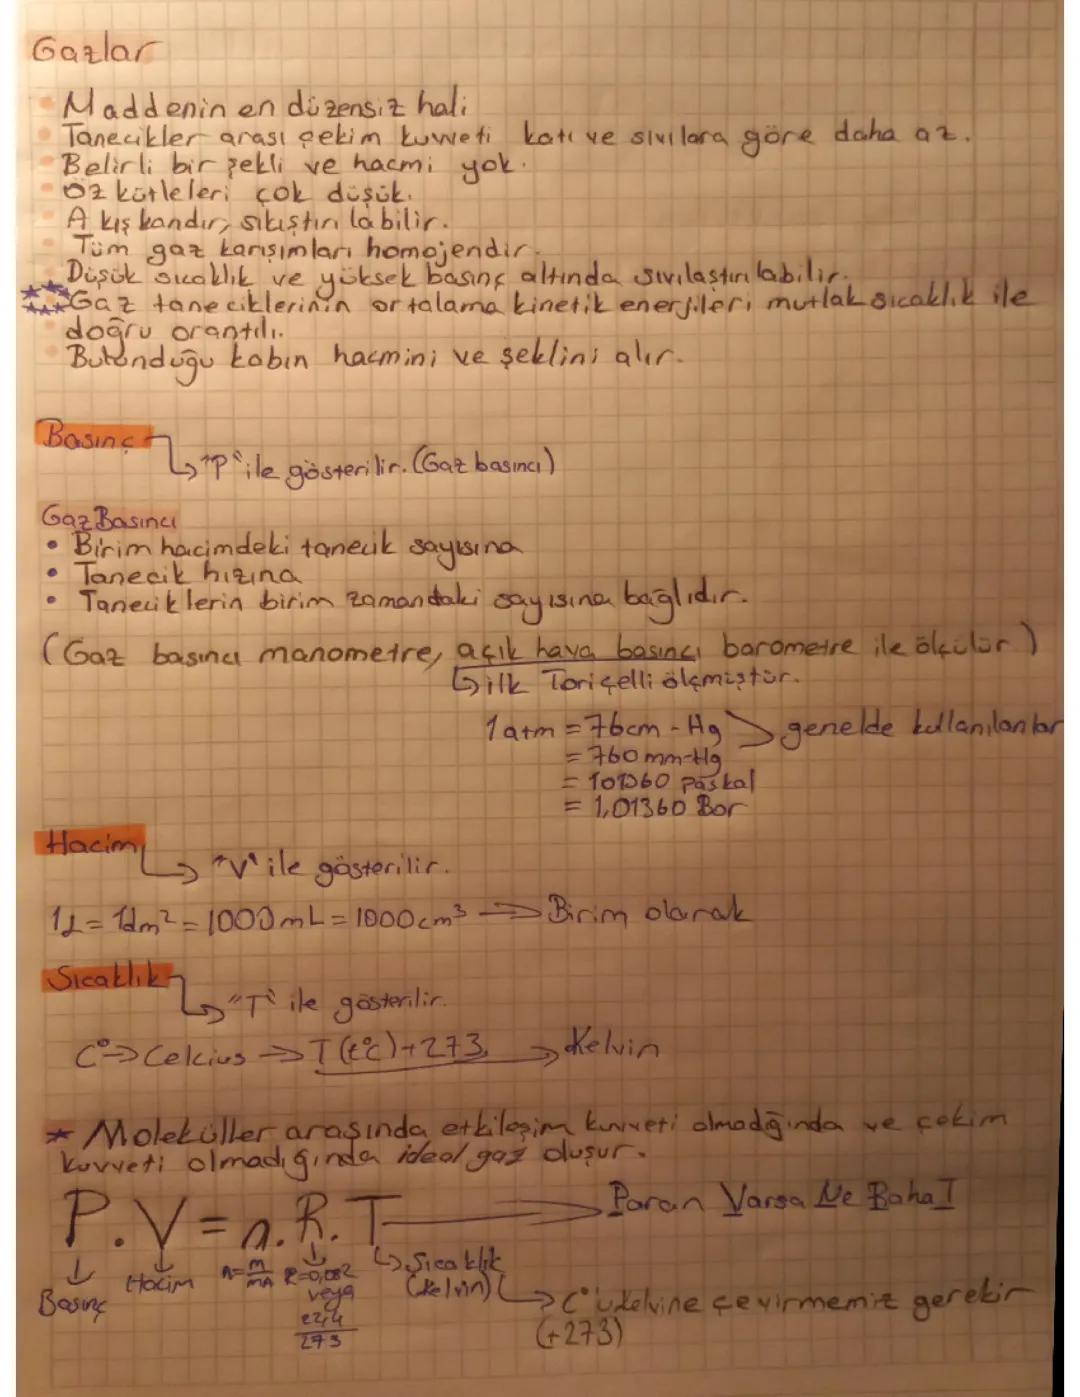 Gazlar
Maddenin en düzensiz hali
Tanecikler arası çekim kuvveti katı ve sıvılara göre daha az.
Belirli bir şekli ve hacmi yok.
Öz kütleleri çok düşük.
Akışkandır, sıkıştırılabilir.
Tüm gaz karışımları homojendir.
Düşük sıcaklık ve yüksek basınç altında sıvılaştırılabilir.
Gaz taneciklerinin ortalama kinetik enerjileri mutlak sıcaklık ile
doğru orantılı.
Bulunduğu kabın hacmini ve şeklini alır.
Basınç
"P" ile gösterilir. (Gaz basıncı)
Gaz Basıncı
• Birim hacimdeki tanecik sayısına
• Tanecik hızına
• Taneciklerin birim zamandaki sayısına bağlıdır.
(Gaz basıncı manometre, açık hava basıncı barometre ile ölçülür)
ilk Toriçelli ölçmüştür.
1 atm = 76cm-Hg > genelde kullanılanlar
= 760 mm-Hg
= 101360 paskal
= 1,01360 Bar
Hacim
"V" ile gösterilir.
1L = 1dm² = 1000mL = 1000cm³ → Birim olarak
Sıcaklık
"T" ile gösterilir.
C° → Celcius → T(t°c)+273 → Kelvin
* Moleküller arasında etkileşim kuvveti olmadığında ve çekim
kuvveti olmadığında ideal gaz oluşur.
P.V = n.R.T → Paran Varsa Ne BahaT
Basınç Hacim n=m/mA R=0,082 veya 22,4/273 Sıcaklık (Kelvin)
C°'u kelvine çevirmemiz gerekir
(+273)